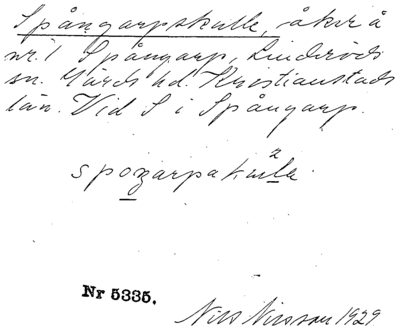 Spångarpskulle, åker å
nr. 1 Spångarp, Linderöds
sn. Gärds hd. Kristianstads
län. Vid S i Spångarp.
2
spoŋarpakulla.
Nr 5335.
Nils Nilsson 1929